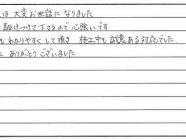 は 大変お世話に なりました
駆けつけて下さるので 心強いです
わかりやすくして頂き 施工中も 誠意ある対応でした
ありがとうございました